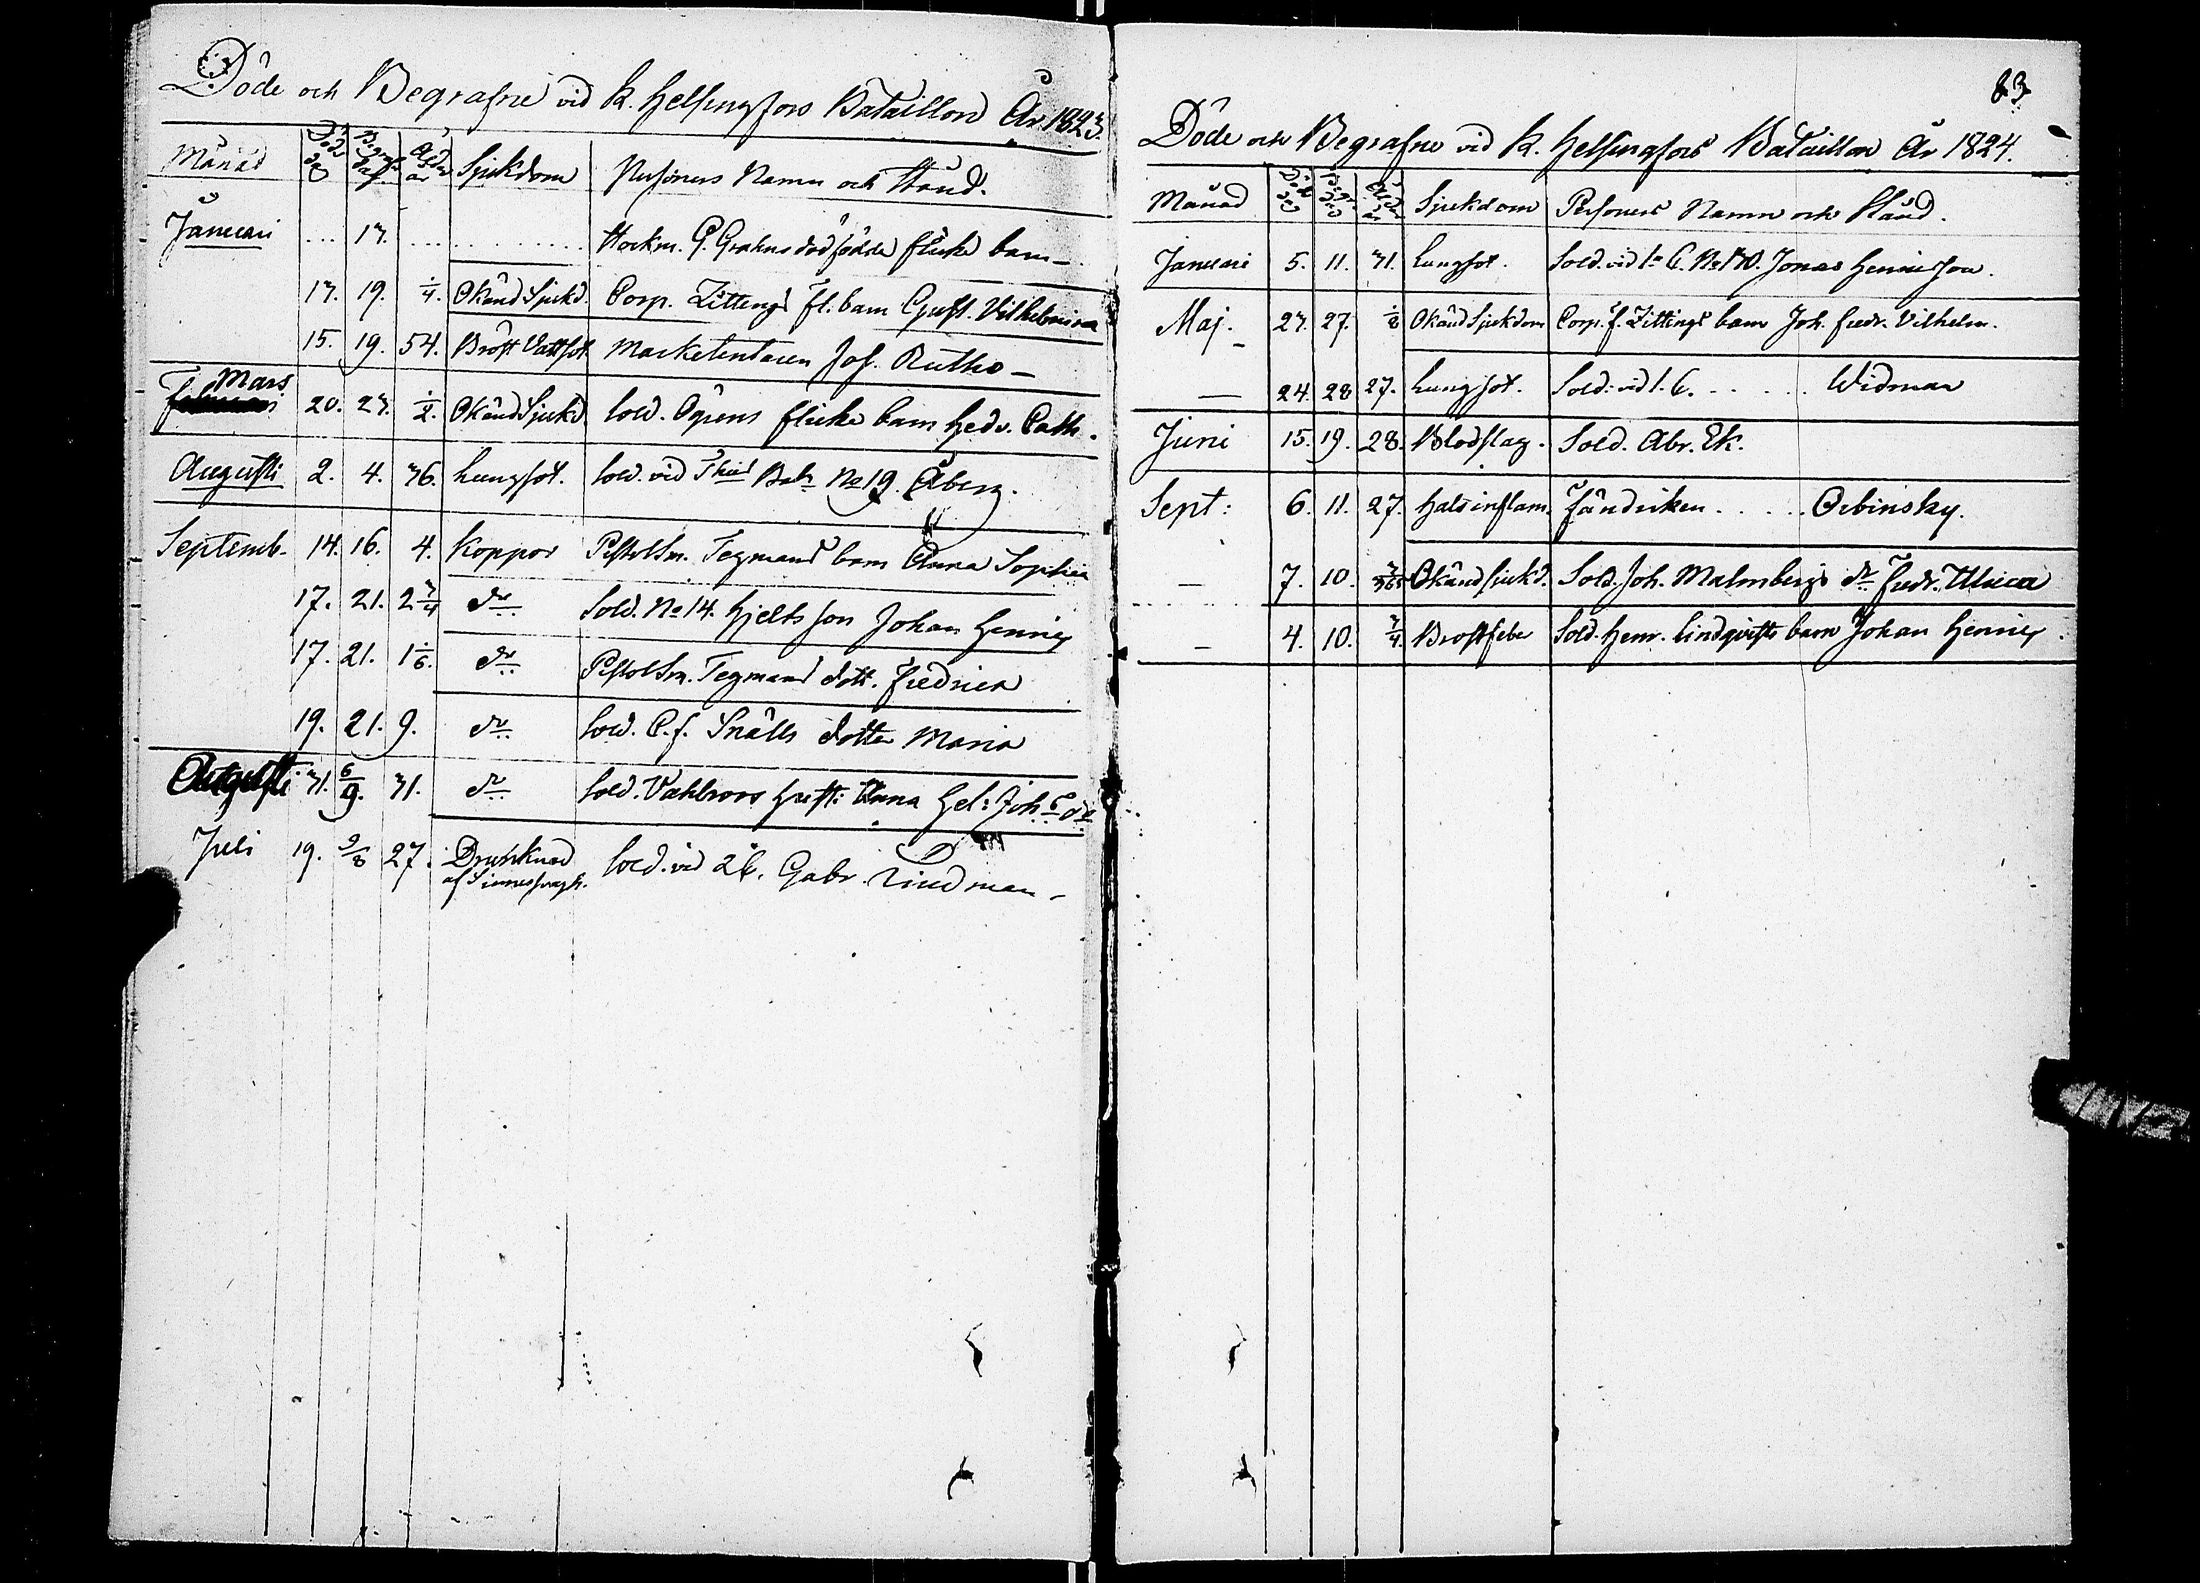 Döde och Begrafne vid K. Helsingfors Bataillon År 1823.
Månad Död dag Begr. dag Ålder år Sjukdom Personens Namn och Stånd.
Januari ... 13. ... Stockm. G. Grahns dödfödda flicke barn
13. 19. 1/4. Okänd Sjukd. Corp. Zittings fl. barn Gust. Vilhelmina
15. 19. 54. Bröst Vattsot Marketentaren Jos. Rutho
Februari Mars 20. 23. 1/2. Okänd Sjukd. Sold. Ögrens flicke barn Hedv. Cath.
Augusti 2. 4. 36. Lungsot. Sold. vid Thus Bat: No 19. Åberg.
Septemb. 14. 16. 4. Koppor Pistolsm. Tegmans barn Anna Sophia
17. 21. 2 3/4 do Sold. No 14. Hjelts son Johan Henric
17. 21. 1 1/6. do Pistolsm. Tegmans dott. Fredrica
19. 21. 9. do Sold. C. F. Snälls dotter Maria
Augusti 31. 6/9. 31. do Sold. Vahlroos hustr: Anna Hel: Joh:s dr
Juli 19. 9/8 27. Drunknad Sold. vid 2 C. Gabr. Lindman
af Sinnessvagh.
83.
Döde och Begrafne vid K. Helsingfors Bataillon År 1824.
Månad Död dag Begr. dag Ålder år Sjukdom Personers Namn och Stånd.
Januari 5. 11. 31. Lungsot. Sold. vid 1a C. No 130. Jonas Henricsson.
Maj. 23. 27. 1/8 Okänd Sjukdom Corp. F. Zittings barn Joh. Fredr. Vilhelm.
— 24. 28 27. Lungsot. Sold. vid 1. C. . . . . . Widman
Juni 15. 19. 28. Blodslag. Sold. Abr. Ek.
Sept: 6. 11. 27. Halsinflam. Fändriken . . . . . Orbinsky.
— 7. 10. 3/365 Okänd sjukd. Sold. Joh. Malmbergs dr Fredr. Ulrica
— 4. 10. 3/4. Bröstfeber Sold. Henr. Lindqvists barn Johan Henric.